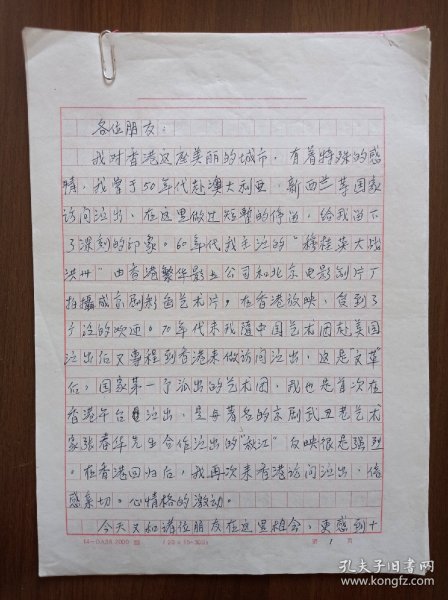 各位朋友：
我对香港这座美丽的城市，有着特殊的感
情，我曾于50年代赴澳大利亚、新西兰等国家
访问泣出，在这里做过短暂的停留，给我留下
了深刻的印象。60年代我主泣的“穆桂英大战
洪州”由香港繁华影业公司和北京电影制片厂
拍摄成京剧彩色艺术片，在香港放映，受到了
广泛的欢迎。70年代末我随中国艺术团赴美国
泣出后又专程到香港来做访问泣出，这是文革
后，国家第一个派出的艺术团，我也是首次在
香港午台泣出，是与著名的京剧武丑老艺术
家张春华先生合作泣出的“秋江”反映很是强烈
。在香港回归后，我再次来香港访问泣出，倍
感亲切。心情格的激动。
今天又和诸位朋友在这里相会，更感到十
第 1 页
孔夫子旧书网
kongfz.com